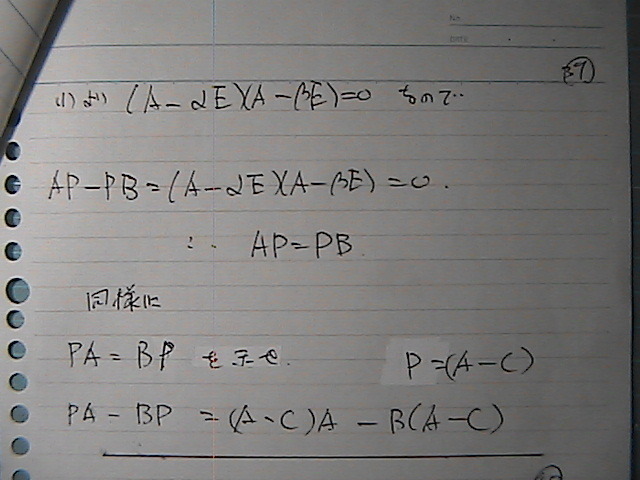 No.
DATE
39
(1)より (A-αE)(A-βE)=0 なので..
AP-PB=(A-αE)(A-βE)=0.
∴ AP=PB.
同様に
PA=BP を示せ. P=(A-C)
PA-BP =(A-C)A -B(A-C)